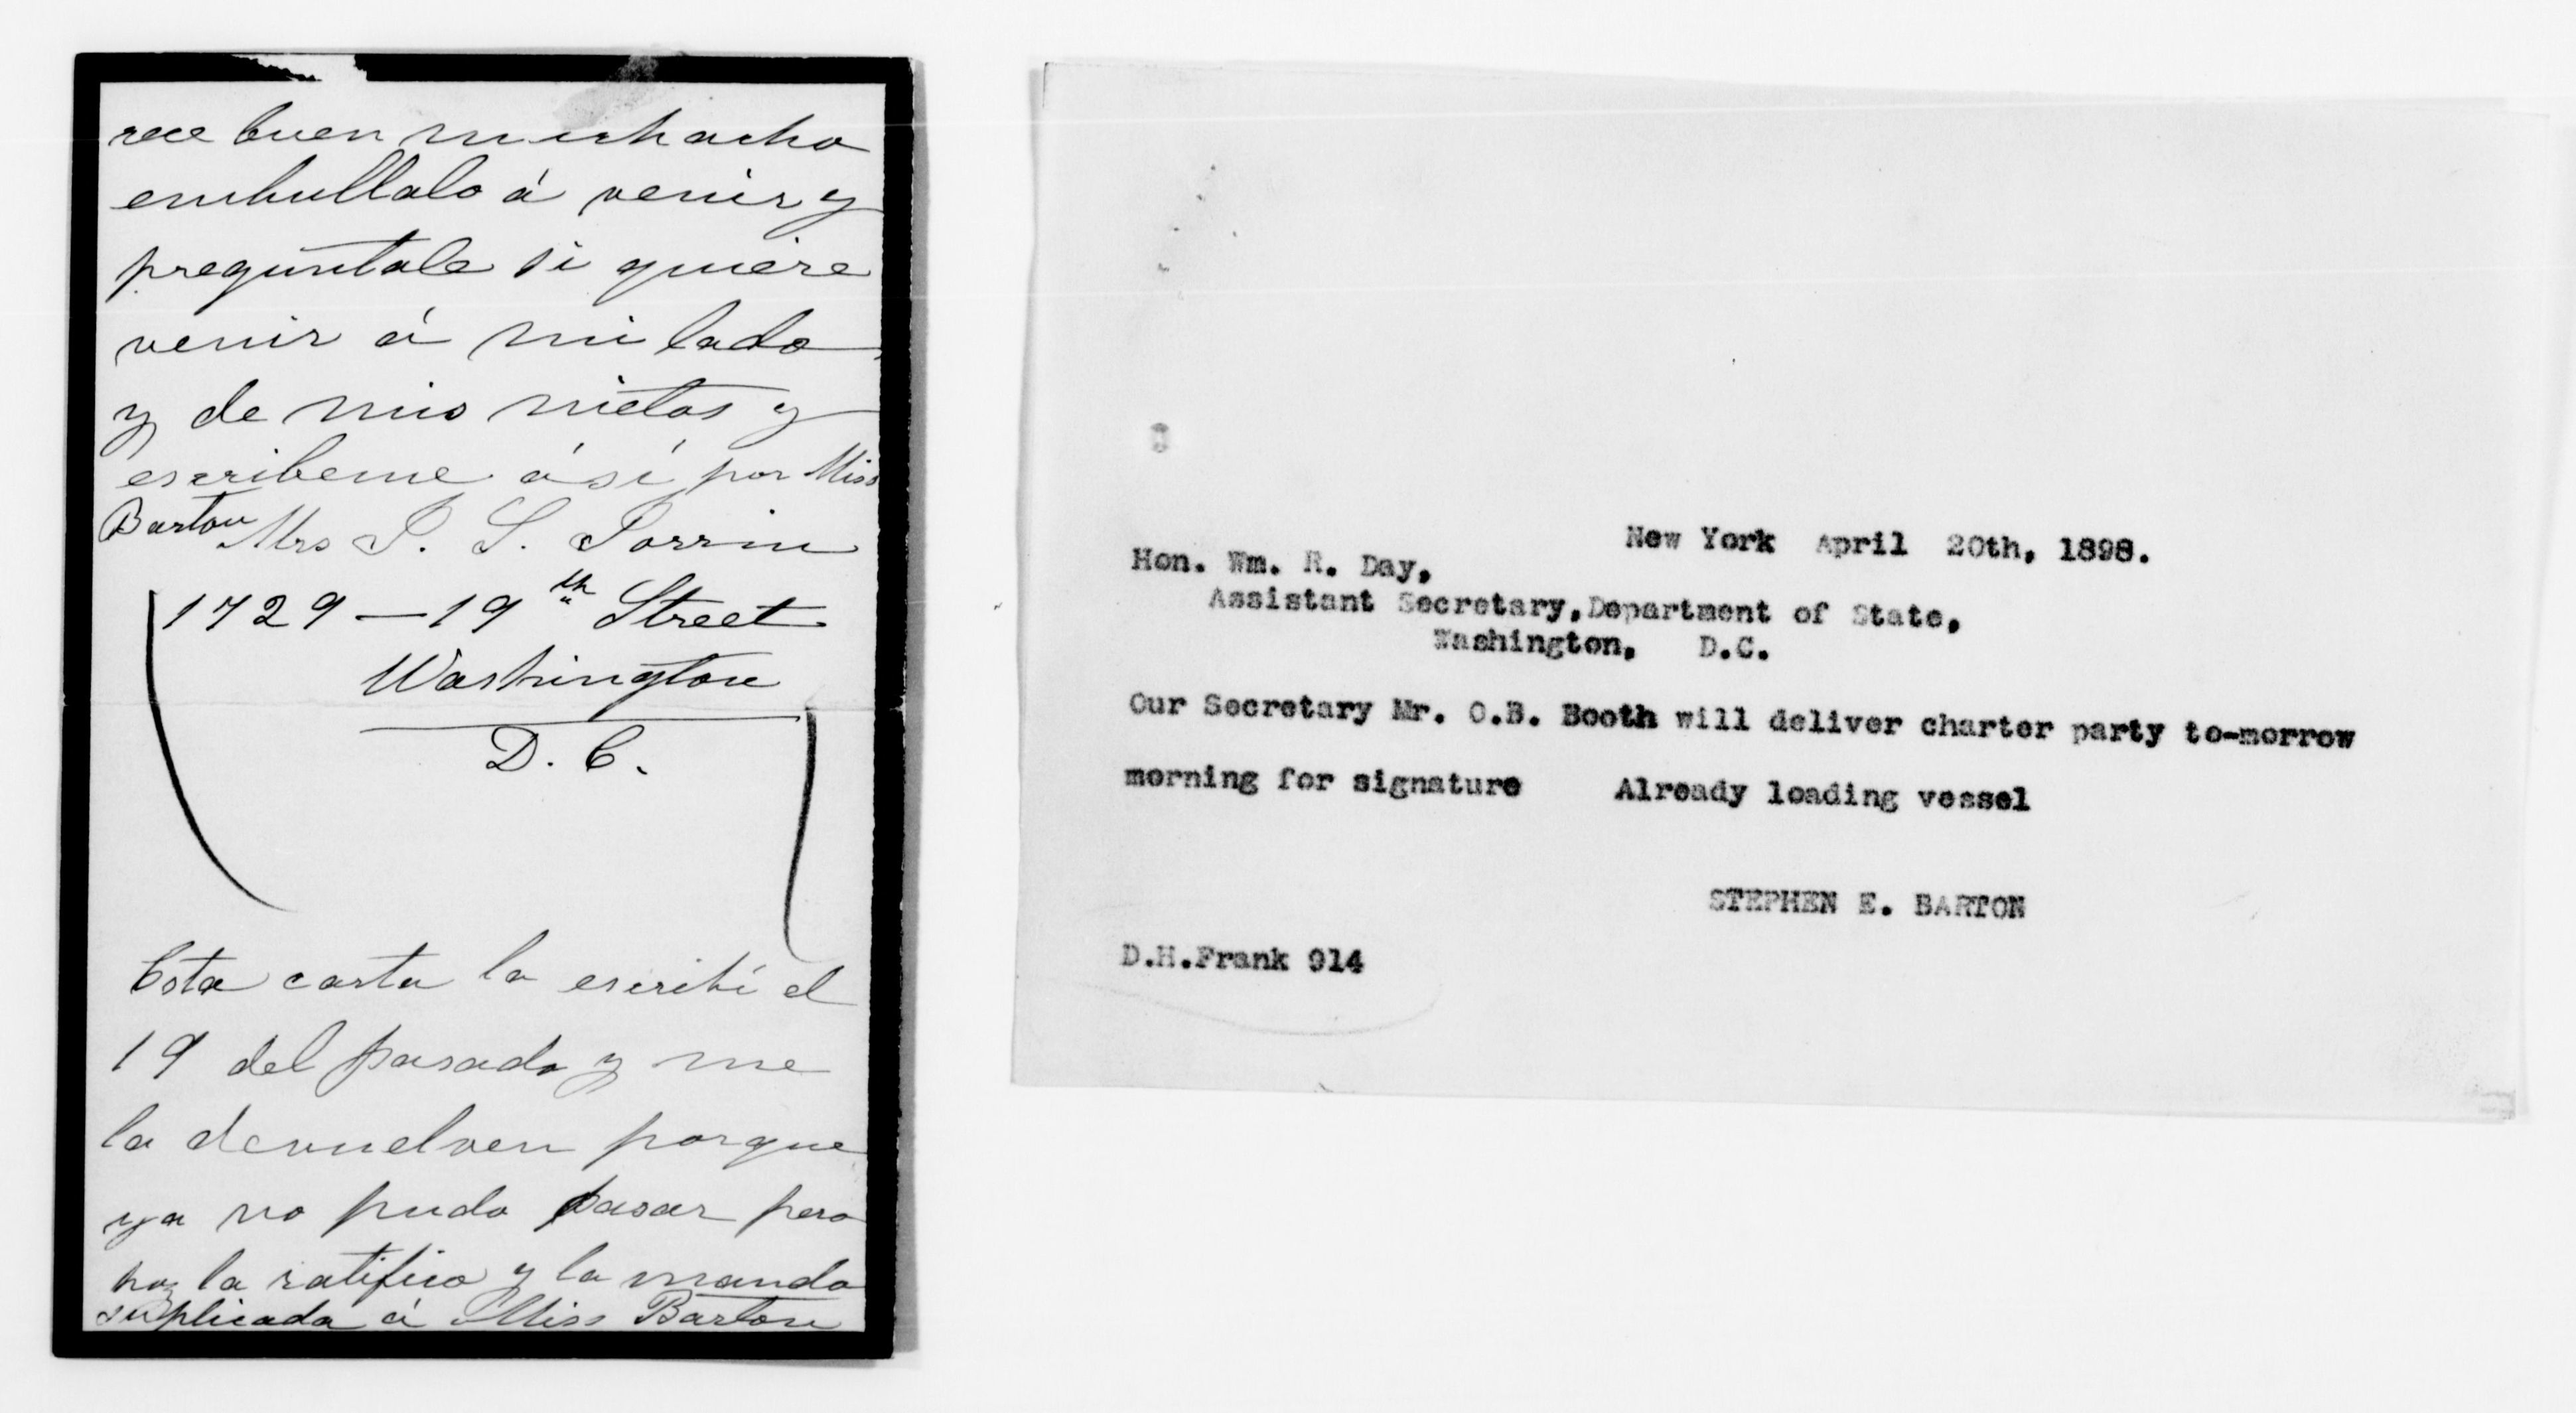 rece buen muchacho
embullalo á venir y
pregúntale si quiere
venir á mi lado
y de mis nietos y
escribeme ási por Miss
Barton Mrs P. S. Porrin
1729 — 19th Street
Washington
D. C.
Esta carta la escribí el
19 del pasado y me
la devuelven porque
ya no pudo pasar pero
hoy la ratifico y la mando
suplicada á Miss Barton
New York April 20th, 1898.
Hon. Wm. R. Day,
Assistant Secretary, Department of State,
Washington, D.C.
Our Secretary Mr. O.B. Booth will deliver charter party to-morrow
morning for signature Already loading vessel
STEPHEN E. BARTON
D.H.Frank 914